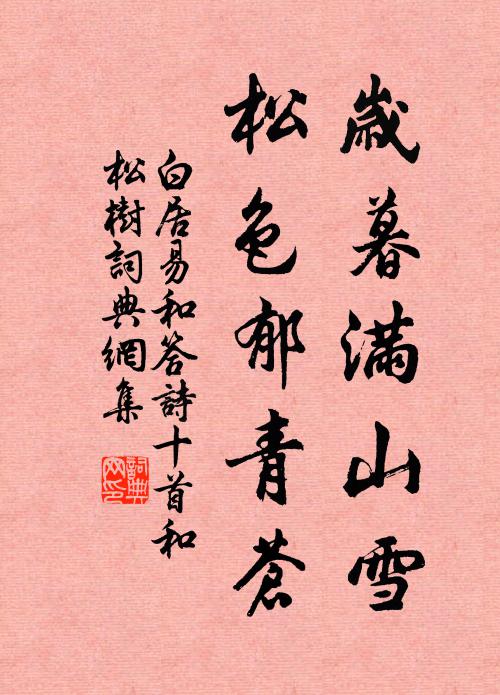 歲暮滿山雪
松色郁青蒼
白居易和答詩十首和
松樹詞典網集
詞典
网印